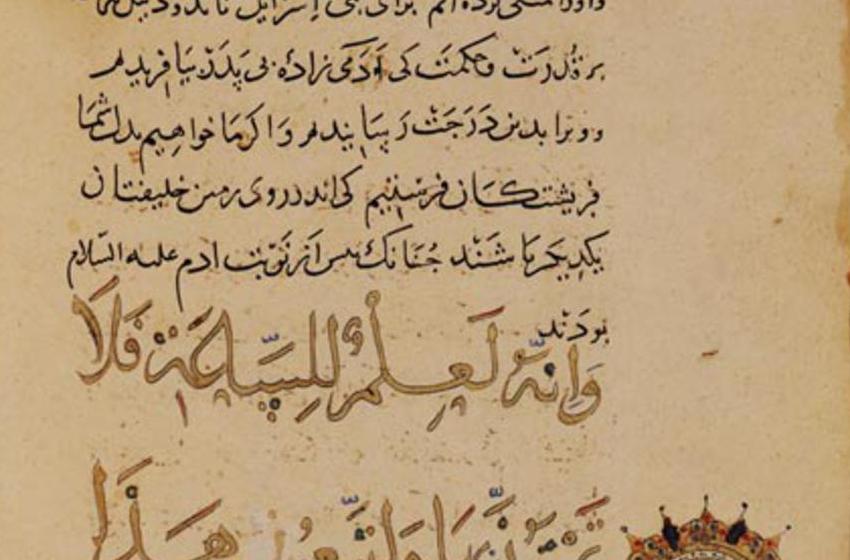 واورا مثلی کرده ایم برای بنی اسرائیل تا بدو دلیل
بر قدرت و حکمت کی آدمی زاده بی پدر بیافریدیم
و ورا بدین درجت رسانیدیم و اکر ما خواهیم بدل شما
فریشتکان فرستیم کی اندر روی زمین خلیفتان
یکدیکر باشند چنانک پس از نوبت ادم علیه السلام
بودند
وَإِنَّهُ لَعِلْمٌ لِلسَّاعَةِ فَلَا
تَمْتَرُنَّ بِهَا وَاتَّبِعُونِ هَذَا